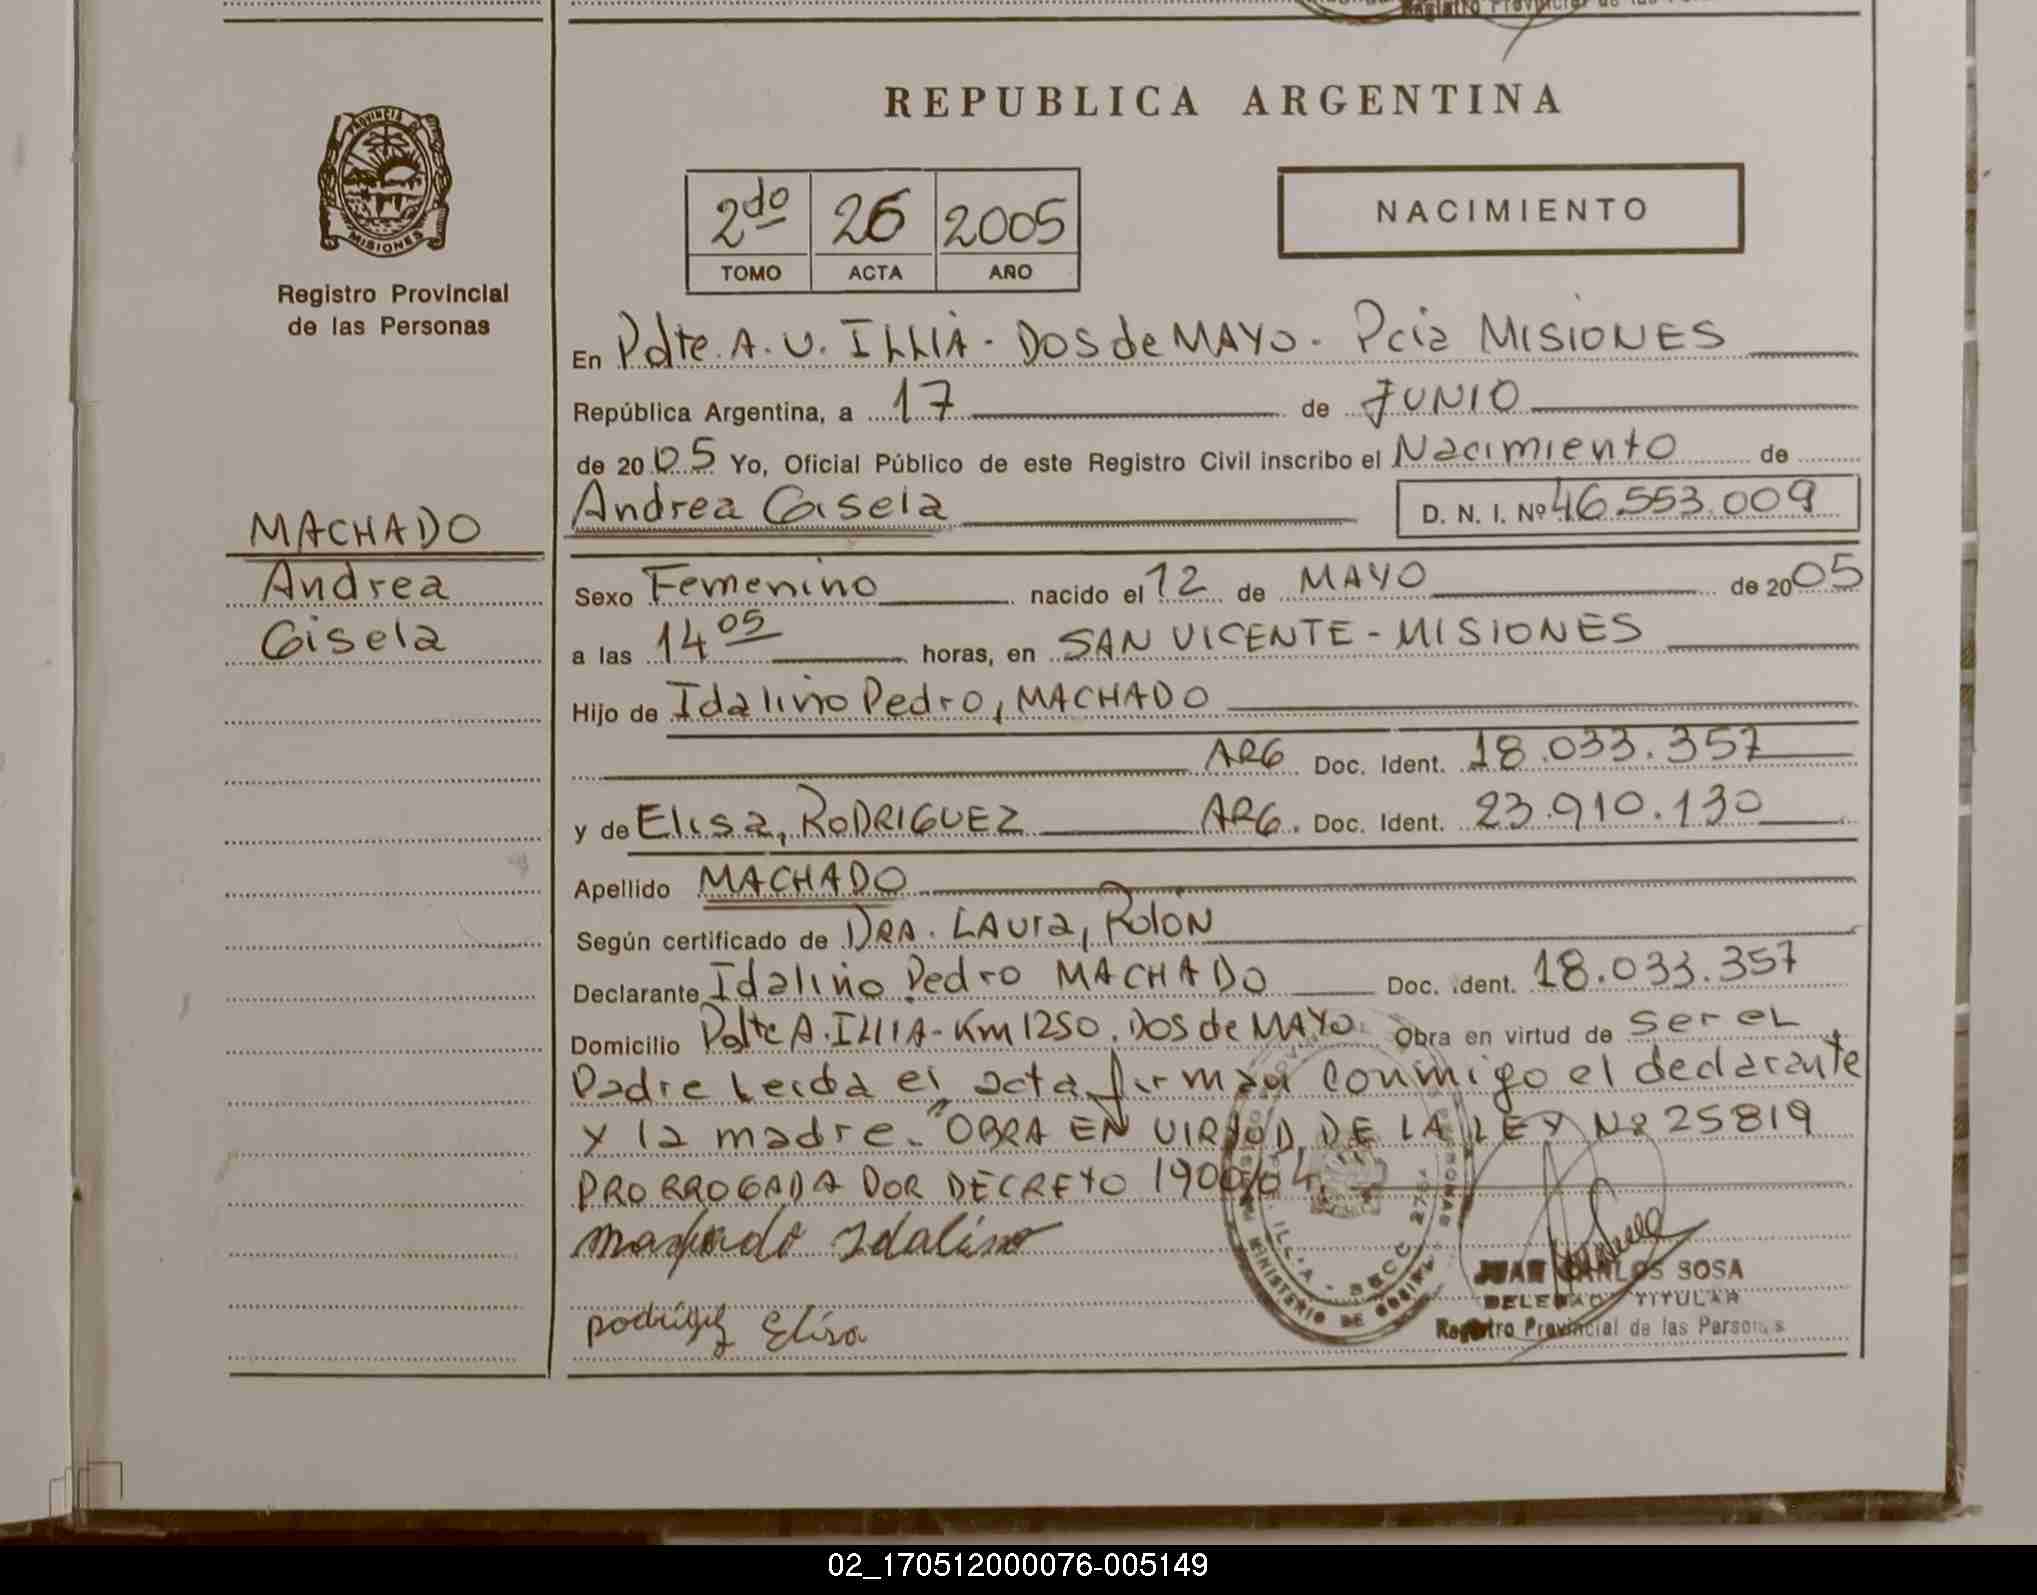 REPUBLICA ARGENTINA
PROVINCIA DE
MISIONES
Registro Provincial
de las Personas
2do 26 2005
TOMO ACTA AÑO
NACIMIENTO
En Pdte. A. U. ILLIA - DOS de MAYO - Pcia MISIONES
República Argentina, a 17 de JUNIO
de 2005 Yo, Oficial Público de este Registro Civil inscribo el Nacimiento de
Andrea Gisela D. N. I. Nº 46.553.009
MACHADO
Andrea
Gisela
Sexo Femenino nacido el 12 de MAYO de 2005
a las 14 05 horas, en SAN VICENTE - MISIONES
Hijo de Idalino Pedro, MACHADO
ARG Doc. Ident. 18.033.357
y de Elisa, RODRIGUEZ ARG. Doc. Ident. 23.910.130
Apellido MACHADO
Según certificado de DRA. LAura, Rolon
Declarante Idalino Pedro MACHADO Doc. ident. 18.033.357
Domicilio Pdte A. ILLIA - Km 1250. DOS de MAYO Obra en virtud de ser el
Padre Leida el acta firman conmigo el declarante
y la madre. "OBRA EN VIRTUD DE LA LEY Nº 25819
PRORROGADA POR DECRETO 1900/04.
machado Idalino
rodriguez Elisa
MINISTERIO DE
JUAN CARLOS SOSA
DELEGADO TITULAR
Registro Provincial de las Personas
02_170512000076-005149